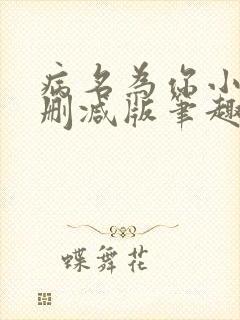 病名为你小
删减版笔趣
蝶舞花